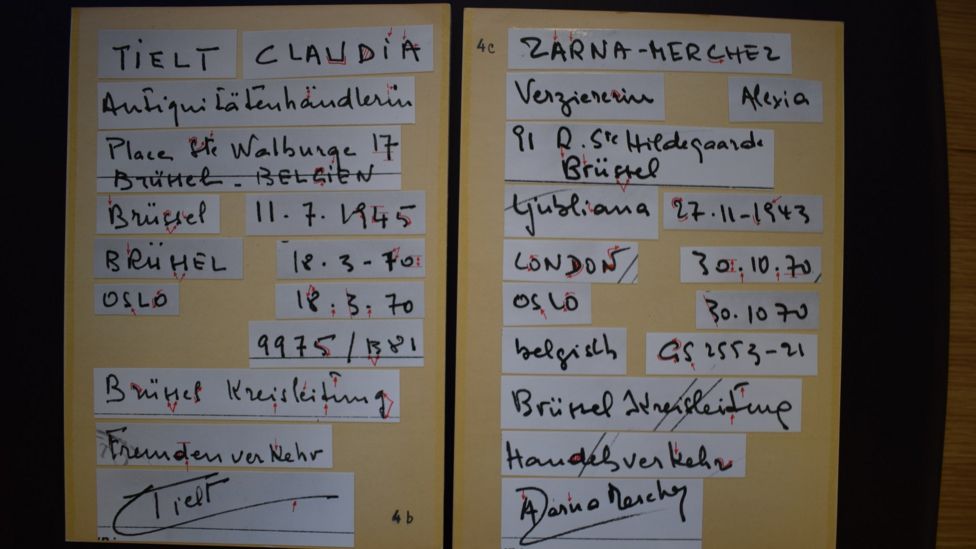 TiELT CLAUDiA
Antiquitätenhändlerin
Place Ste Walburge 17
BRÜSSEL - BELGIEN
Brüssel 11.7.1945
BRÜHEL 18.3-70
OSLO 18.3.70
9975/B81
Brüssel Kreisleitung
Fremdenverkehr
Tielt
4b
4c ZARNA-MERCHEZ
Verziererin Alexia
91 R. Ste Hildegaarde
Brüssel
Ljubliana 27.11-1943
LONDON 30.10.70
OSLO 30.10 70
belgisch GS 2553-21
Brüssel Kreisleitung
Handelsverkehr